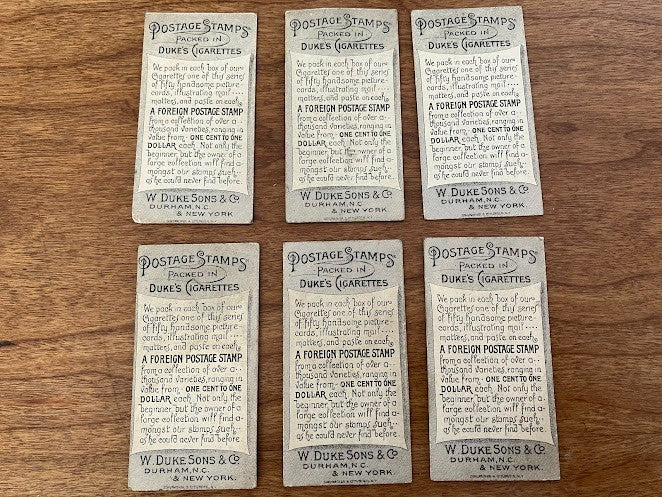 POSTAGE STAMPS
PACKED IN
DUKE'S CIGARETTES
We pack in each box of our
Cigarettes one of this series
of fifty handsome picture-
cards, illustrating mail ....
matters, and paste on each,
A FOREIGN POSTAGE STAMP
from a collection of over a-
thousand varieties, ranging in
value from ONE CENT TO ONE
DOLLAR each. Not only the
beginner, but the owner of a
large collection will find a-
mongst our stamps such-
as he could never find before.
W. DUKE SONS & CO.
DURHAM, N.C.
& NEW YORK.
POSTAGE STAMPS
PACKED IN
DUKE'S CIGARETTES
We pack in each box of our
Cigarettes one of this series
of fifty handsome picture-
cards, illustrating mail ....
matters, and paste on each,
A FOREIGN POSTAGE STAMP
from a collection of over a-
thousand varieties, ranging in
value from ONE CENT TO ONE
DOLLAR each. Not only the
beginner, but the owner of a
large collection will find a-
mongst our stamps such-
as he could never find before.
W. DUKE SONS & CO.
DURHAM, N.C.
& NEW YORK.
POSTAGE STAMPS
PACKED IN
DUKE'S CIGARETTES
We pack in each box of our
Cigarettes one of this series
of fifty handsome picture-
cards, illustrating mail ....
matters, and paste on each,
A FOREIGN POSTAGE STAMP
from a collection of over a-
thousand varieties, ranging in
value from ONE CENT TO ONE
DOLLAR each. Not only the
beginner, but the owner of a
large collection will find a-
mongst our stamps such-
as he could never find before.
W. DUKE SONS & CO.
DURHAM, N.C.
& NEW YORK.
POSTAGE STAMPS
PACKED IN
DUKE'S CIGARETTES
We pack in each box of our
Cigarettes one of this series
of fifty handsome picture-
cards, illustrating mail ....
matters, and paste on each,
A FOREIGN POSTAGE STAMP
from a collection of over a-
thousand varieties, ranging in
value from ONE CENT TO ONE
DOLLAR each. Not only the
beginner, but the owner of a
large collection will find a-
mongst our stamps such-
as he could never find before.
W. DUKE SONS & CO.
DURHAM, N.C.
& NEW YORK.
POSTAGE STAMPS
PACKED IN
DUKE'S CIGARETTES
We pack in each box of our
Cigarettes one of this series
of fifty handsome picture-
cards, illustrating mail ....
matters, and paste on each,
A FOREIGN POSTAGE STAMP
from a collection of over a-
thousand varieties, ranging in
value from ONE CENT TO ONE
DOLLAR each. Not only the
beginner, but the owner of a
large collection will find a-
mongst our stamps such-
as he could never find before.
W. DUKE SONS & CO.
DURHAM, N.C.
& NEW YORK.
POSTAGE STAMPS
PACKED IN
DUKE'S CIGARETTES
We pack in each box of our
Cigarettes one of this series
of fifty handsome picture-
cards, illustrating mail ....
matters, and paste on each,
A FOREIGN POSTAGE STAMP
from a collection of over a-
thousand varieties, ranging in
value from ONE CENT TO ONE
DOLLAR each. Not only the
beginner, but the owner of a
large collection will find a-
mongst our stamps such-
as he could never find before.
W. DUKE SONS & CO.
DURHAM, N.C.
& NEW YORK.